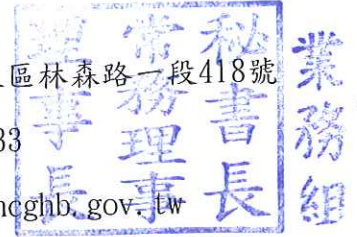 區林森路一段418號
33
ncghb.gov.tw
秘書長
常務理事
理事長
業務組